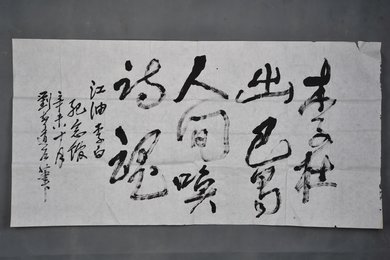 李杜
出巴蜀
人间唤
诗
江油李白
纪念馆
辛未十月
劉